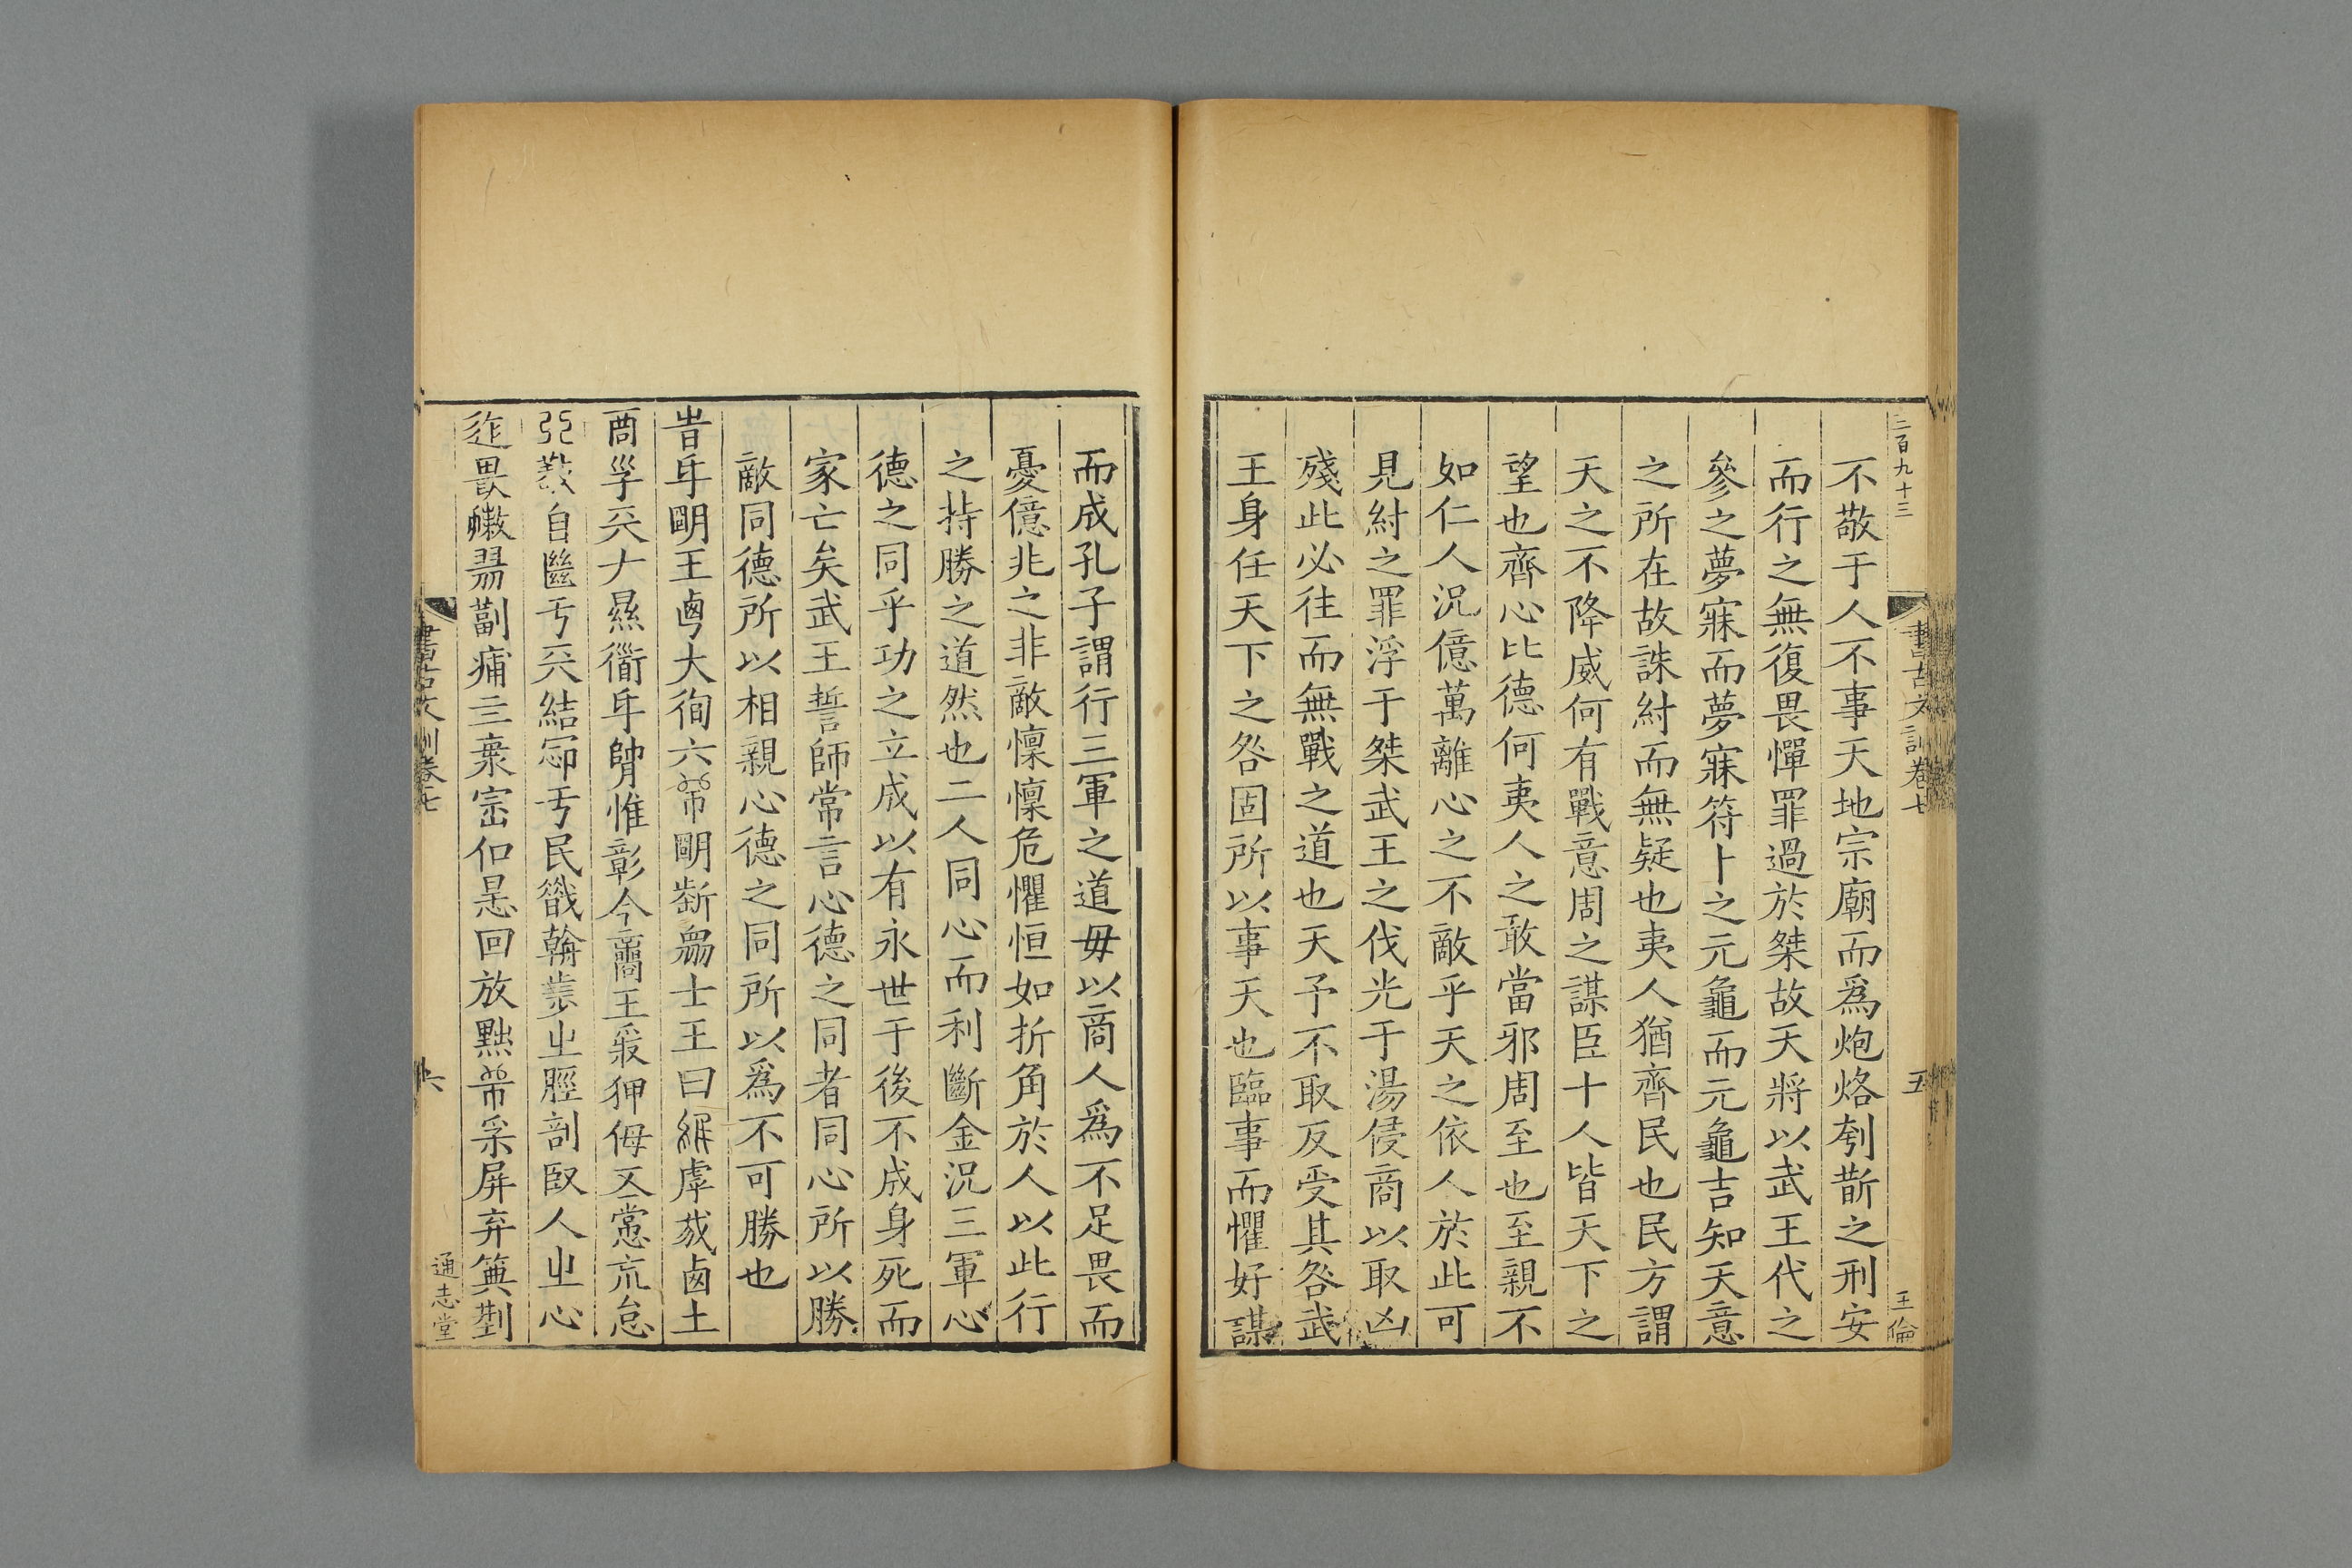 三百九十三
書古文訓卷七
五
王倫
不敬于人不事天地宗廟而爲炮烙刳斮之刑安
而行之無復畏憚罪過於桀故天將以武王代之
參之夢寐而夢寐符卜之元龜而元龜吉知天意
之所在故誅紂而無疑也夷人猶齊民也民方謂
天之不降威何有戰意周之謀臣十人皆天下之
望也齊心比德何夷人之敢當邪周至也至親不
如仁人況億萬離心之不敵乎天之依人於此可
見紂之罪浮于桀武王之伐光于湯侵商以取凶
殘此必往而無戰之道也天予不取反受其咎武
王身任天下之咎固所以事天也臨事而懼好謀
而成孔子謂行三軍之道毋以商人爲不足畏而
憂億兆之非敵懍懍危懼恒如折角於人以此行
之持勝之道然也二人同心而利斷金況三軍心
德之同乎功之立成以有永世于後不成身死而
家亡矣武王誓師常言心德之同者同心所以勝
敵同德所以相親心德之同所以爲不可勝也
旹年朙王大徇六朙士王曰虖土
大年惟彰今王狎侮亢怠
自亐結亐民之脛剖人之心
畏痡三衆回放黜屏弃
書古文訓卷七
六
通志堂